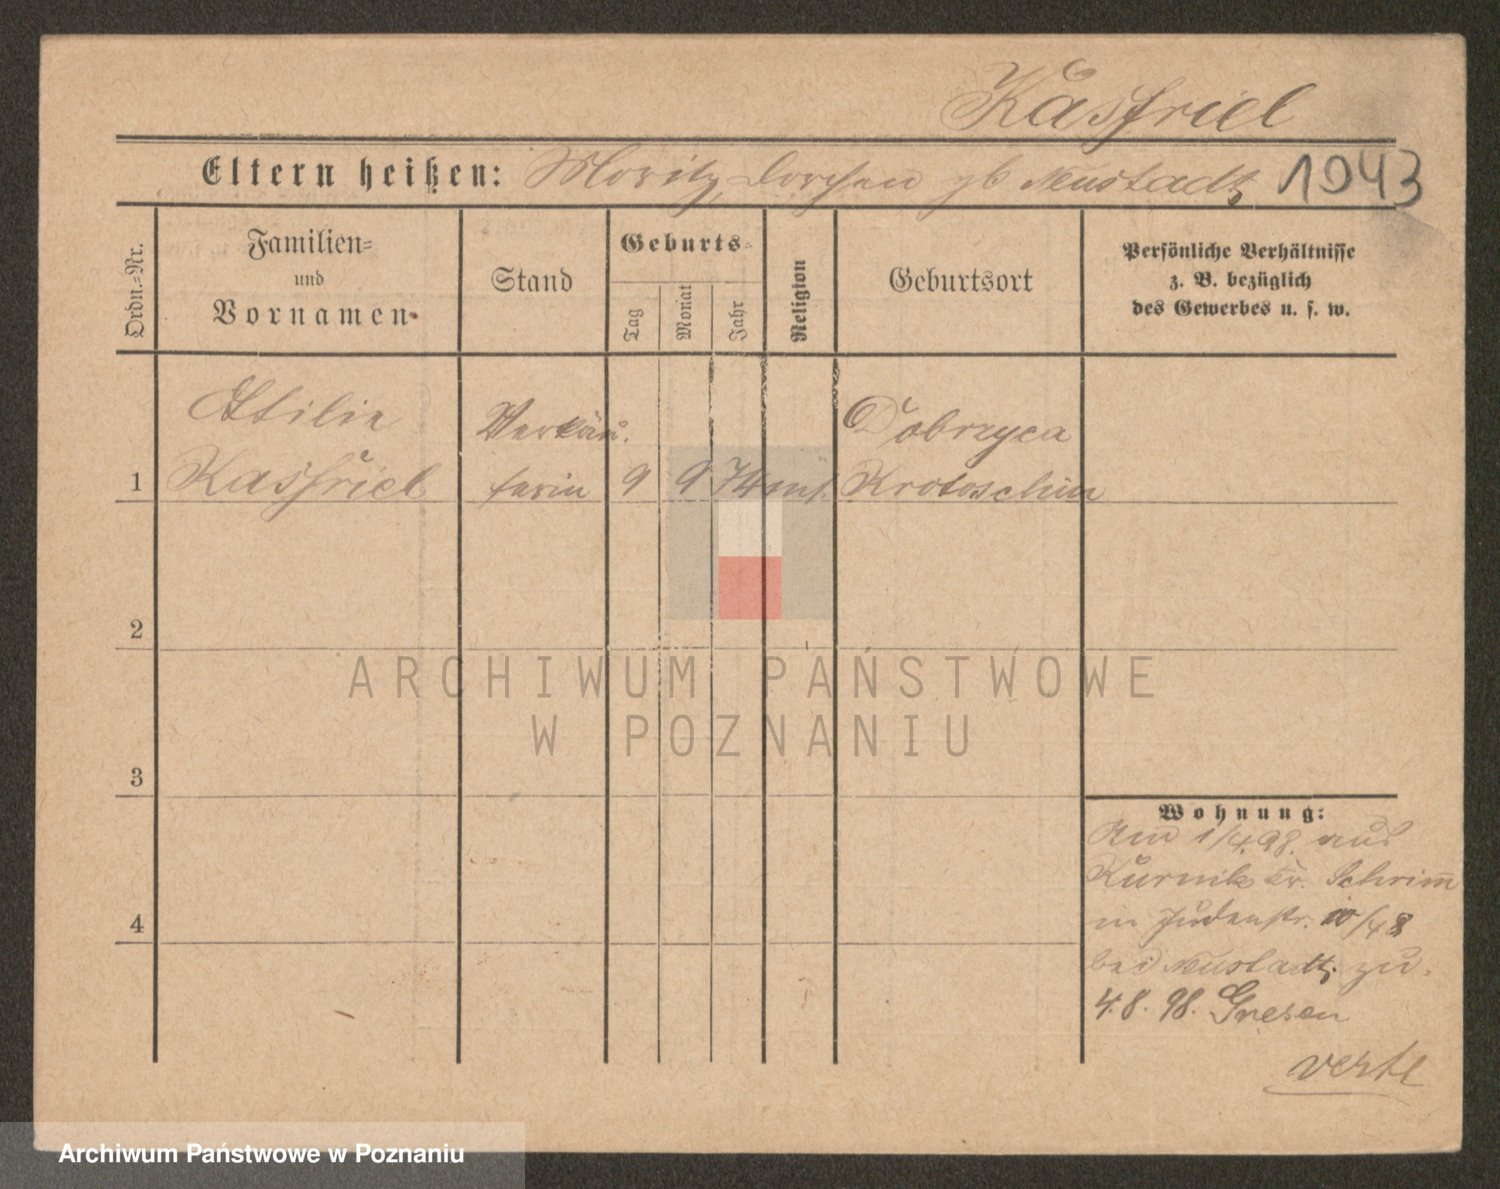 Kasfriel
Eltern heißen: Moritz, Dorchen gb Neustadt 1943
Ordn.=Nr.
Familien=
und
Vornamen
Stand
Geburts=
Tag
Monat
Jahr
Religion
Geburtsort
Persönliche Verhältnisse
z. B. bezüglich
des Gewerbes u. s. w.
Verkäu.
Dobrzyca
1 Kasfriel ferin 9 9 74 Krotoschin
2
3
4
Wohnung:
Am 1/4.98. aus
Kurnik Kr. Schrimm
Judenstr.
bei Neustadt. zu.
4.8.98. Gnesen
verte
ARCHIWUM PAŃSTWOWE
W POZNANIU
Archiwum Państwowe w Poznaniu